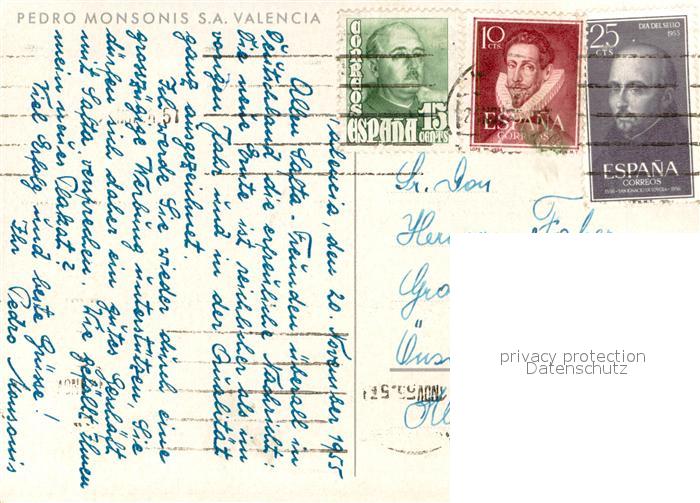 PEDRO MONSONIS S.A. VALENCIA
Valencia, den 20. November 1955
Allen Safta-Freunden überall in
Deutschland die erfreuliche Nachricht:
Die neue Ernte ist reichlicher als im
vorigen Jahr und in der Qualität
ganz ausgezeichnet.
Ich werde Sie wieder durch eine
grosszügige Werbung unterstützen, Sie
dürfen sich daher ein gutes Geschäft
mit Safta versprechen. Wie gefällt Ihnen
mein neues Plakat?
Viel Erfolg und beste Grüsse!
Ihr Pedro Monsonis
CORREOS
15
CENTS
ESPAÑA
10
CTS.
ESPAÑA
CORREOS
25
CTS
DIA DEL SELLO
1955
ESPAÑA
CORREOS
1556 - SAN IGNACIO DE LOYOLA - 1956
Sr. Don
privacy protection
Datenschutz